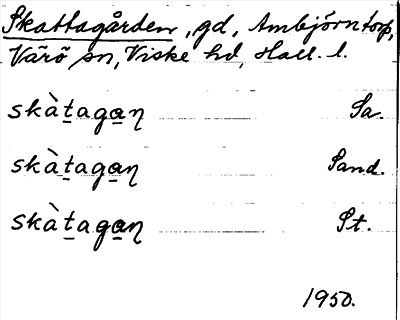 Skattagården, gd, Ambjörntorp,
Värö sn, Viske hd, Hall. l.
skàt̲aga̲ŋ Sa.
skàt̲aga̲ŋ Sand.
skàt̲aga̲ŋ St.
1950.